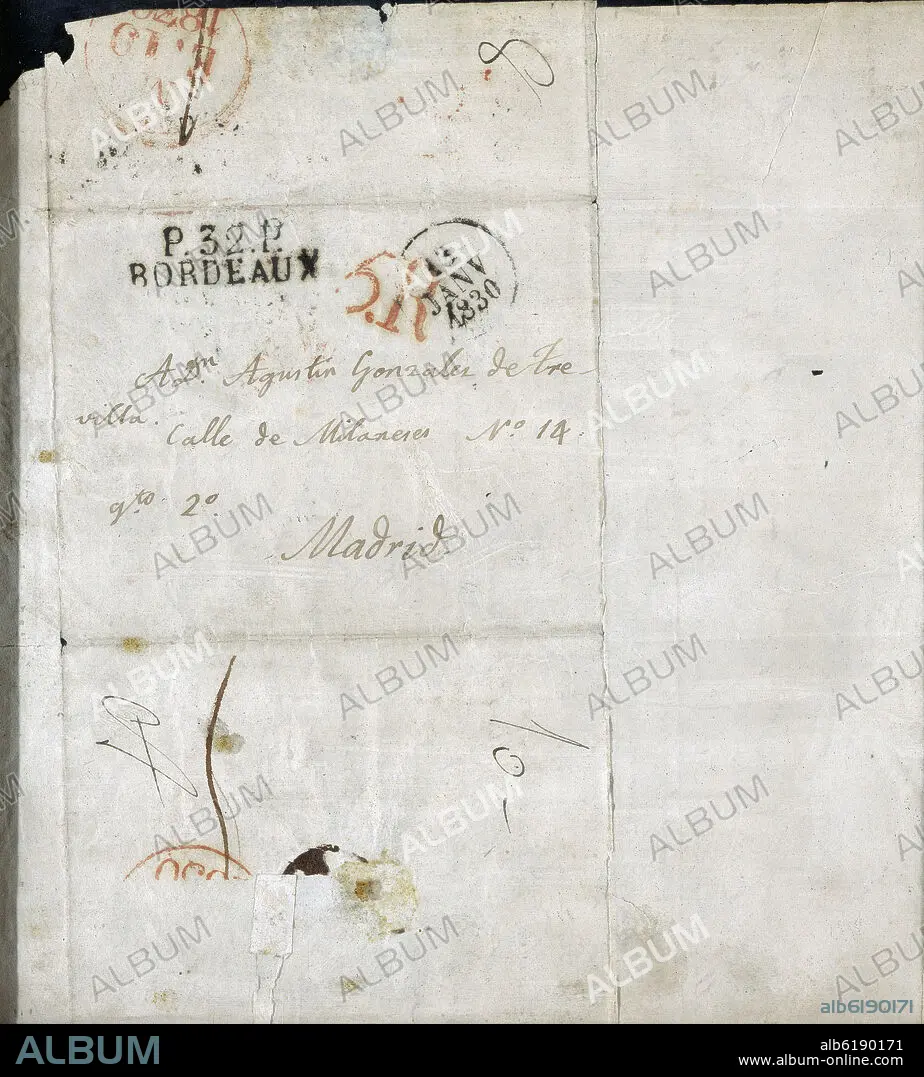 P.32.P.
BORDEAUX
13
JANV
1830
A Dn. Agustin Gonzales de Tre-
villa.
Calle de Milaneses No 14.
qto 2o
Madrid
ALBUM
alb6190171
ALBUM
alb6190171
www.album-online.com